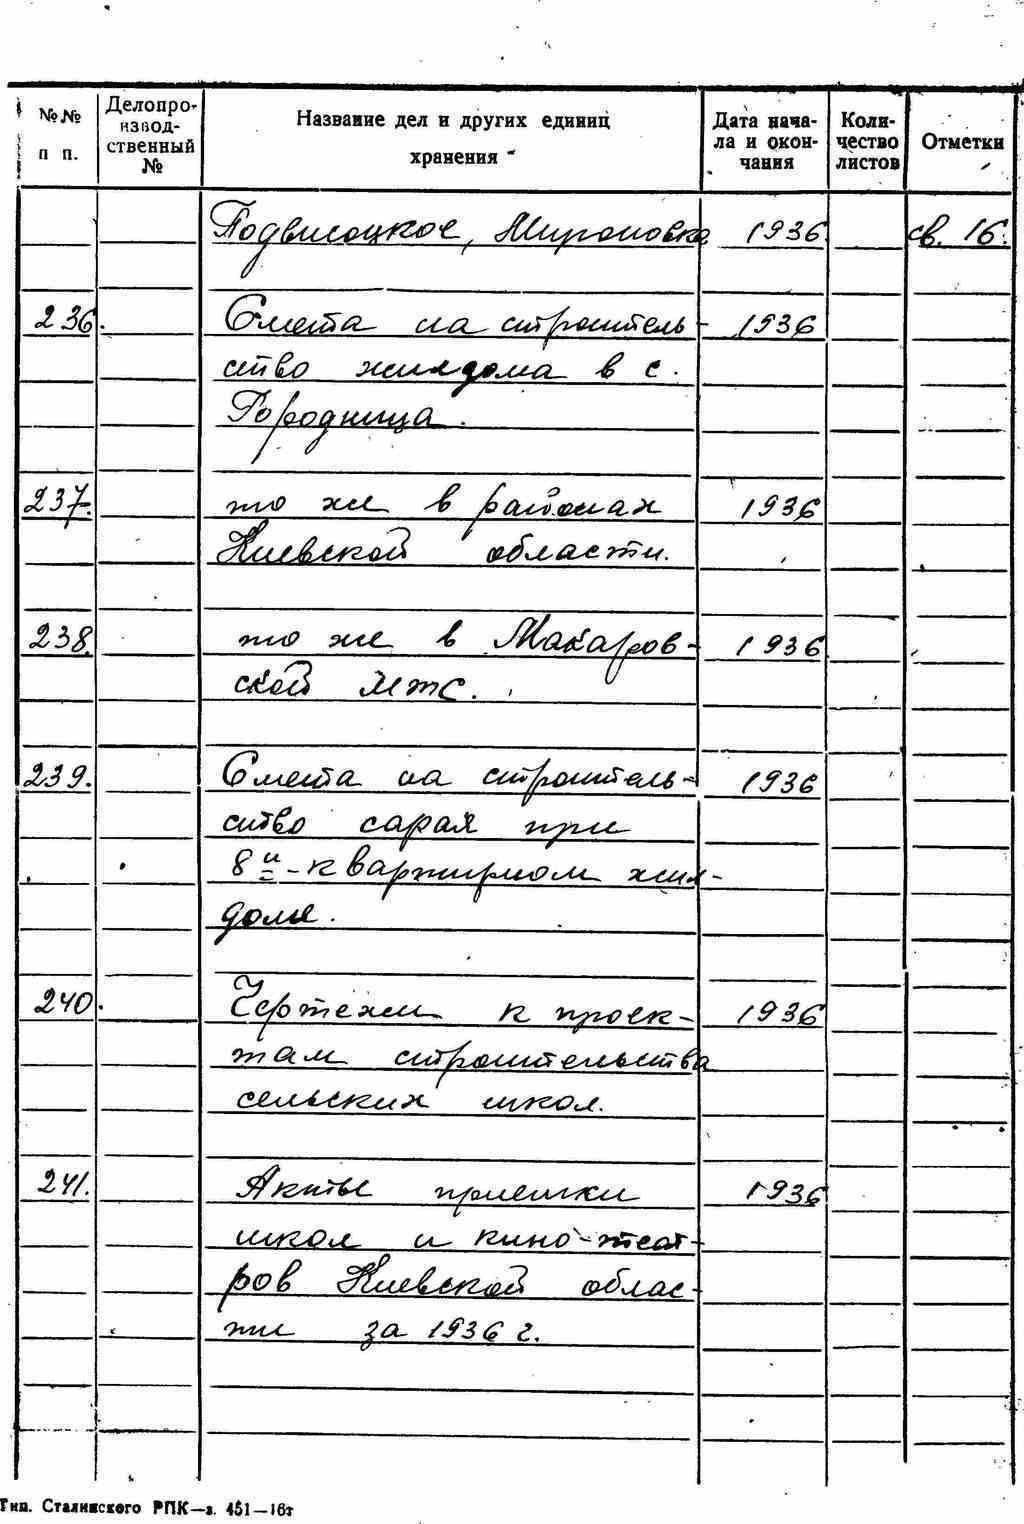 №№ п п.
Делопроизводственный №
Название дел и других единиц хранения
Дата начала и окончания
Количество листов
Отметки
Подвысоцкое, Мироновка 1936 св. 16.
236. Смета на строитель- 1936
ство жилдома в с.
Городница.
237. то же в районах 1936
Киевской области.
238. то же в Макаров- 1936
ской МТС.
239. Смета на строитель- 1936
ство сарая при
8и-квартирном жил-
доме.
240. Чертежи к проек- 1936
там строительства
сельских школ.
241. Акты приемки 1936
школ и кино-теат-
ров Киевской облас-
ти за 1936 г.
Тип. Сталинского РПК—з. 451—16т